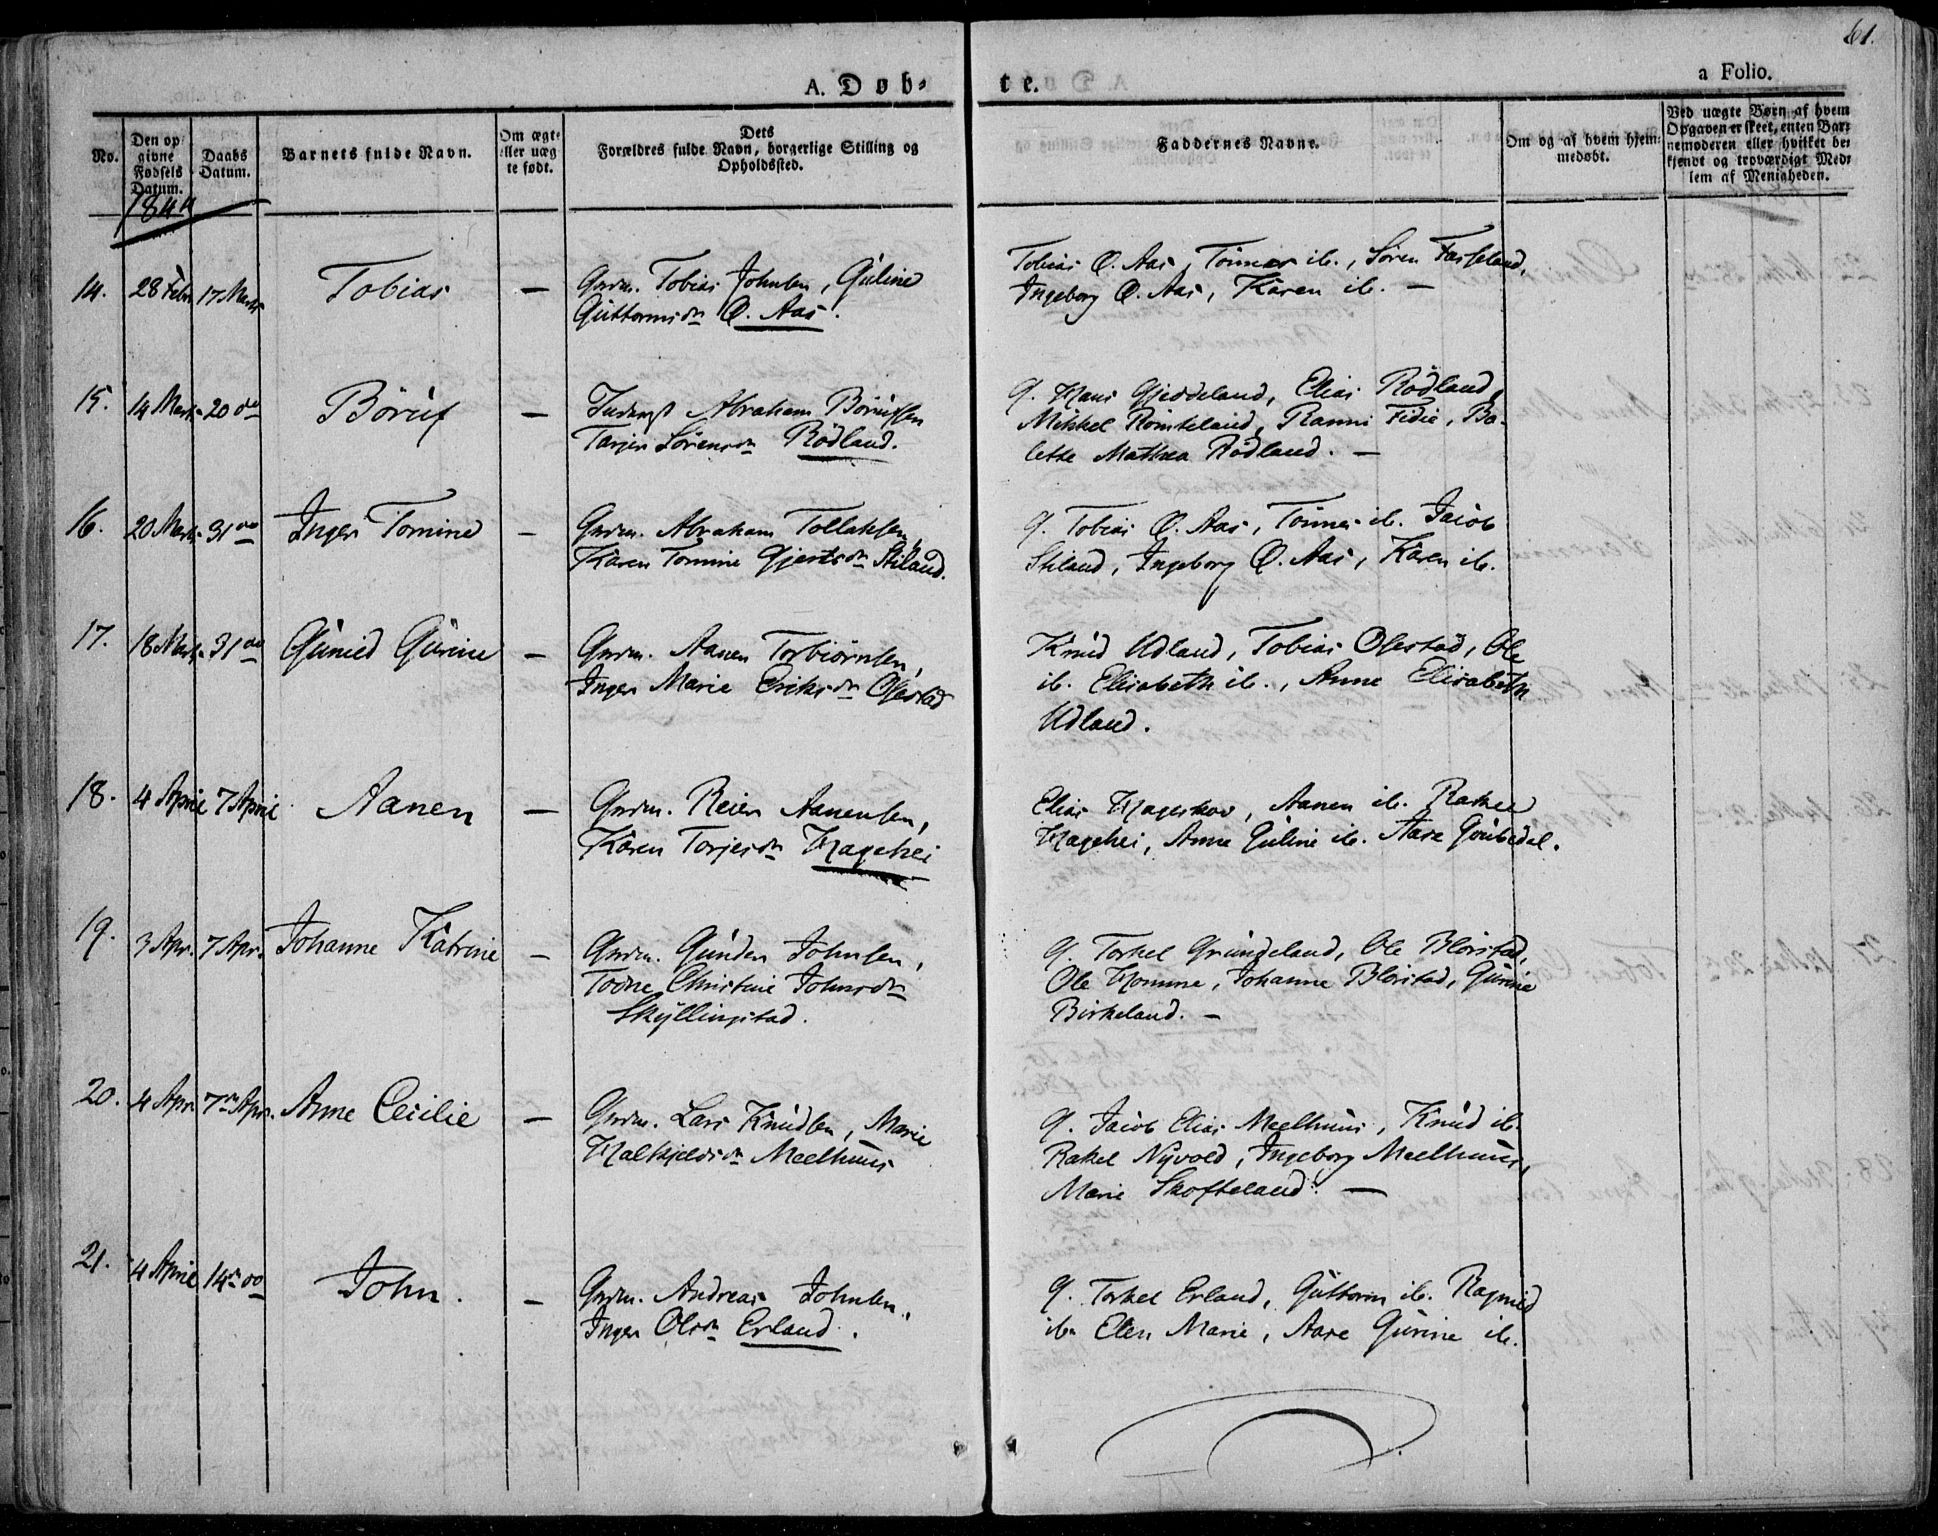 61.
A. Døb-
te.
a Folio.
No.
Den op
givne
Fødsels
Datum.
Daabs
Datum.
Barnets fulde Navn.
Om ægte
eller uæg
te født.
Dets
Forældres fulde Navn, borgerlige Stilling og
Opholdssted.
Faddernes Navne.
Om og af hvem hjem-
medøbt.
Ved uægte Børn af hvem
Opgaven er skeet, enten Bar-
nemoderen eller hvilket be-
kjendt og troværdigt Med-
lem af Menigheden.
1844
14. 28 Febr 17 Marts Tobias — Grdm. Tobias Johnsen, Guline
Guttormsdr O. Aas.
Tobias O. Aas, Tønnes ib., Søren Fasseland,
Ingeborg O. Aas, Karen ib. —
15. 14 Marts 20 do Børuf — Inderst Abraham Børufsen
Tarjer Sørensdr Rødland.
G. Hans Gjeddeland, Elias Rødland,
Mikkel Römteland, Ranni Fidie, Bo-
lette Mathea Rødland. —
16. 20 Marts 31 do Inger Tomine — Grdm. Abraham Tollaksen,
Karen Tomine Gjertsdr Stiland.
G. Tobias O. Aas, Tønnes ib. Jacob
Stiland, Ingeborg O. Aas, Karen ib.
17. 18 Marts 31 do Gunild Gurine — Grdm. Aanen Torbiørnsen,
Inger Marie Eriksdr Ofestad
Knud Udland, Tobias Ofestad, Ole
ib. Elisabeth ib., Anne Elisabeth
Udland.
18. 4 April 7 April Aanen — Grdm. Reier Aanensen,
Karen Torjesdr Hagehei
Elias Hageskov, Aanen ib. Rakel
Hagehei, Anne Guline ib. Aase Goubedal.
19. 3 Apr. 7 Apr. Johanne Katrine — Grdm. Gunder Johnsen,
Todne Christine Johnsdr
Skyllingstad.
G. Torkel Grundeland, Ole Bleristad,
Ole Homme, Johanne Bleristad, Gurine
Birkeland. —
20. 4 Apr 7de Apr. Anne Cecilie — Grdm. Lars Knudsen, Marie
Halkjeldsdr Meelhuus
G. Jacob Elias Meelhuus, Knud ib.
Rakel Nyvold, Ingeborg Meelhuus,
Marie Skofteland. —
21. 4 April 14de do John. — Grdm. Andreas Johnsen,
Inger Olsdr Erland.
G. Torkel Erland, Guttorm ib. Ragnild
ib. Elen Marie, Aase Gurine ib.